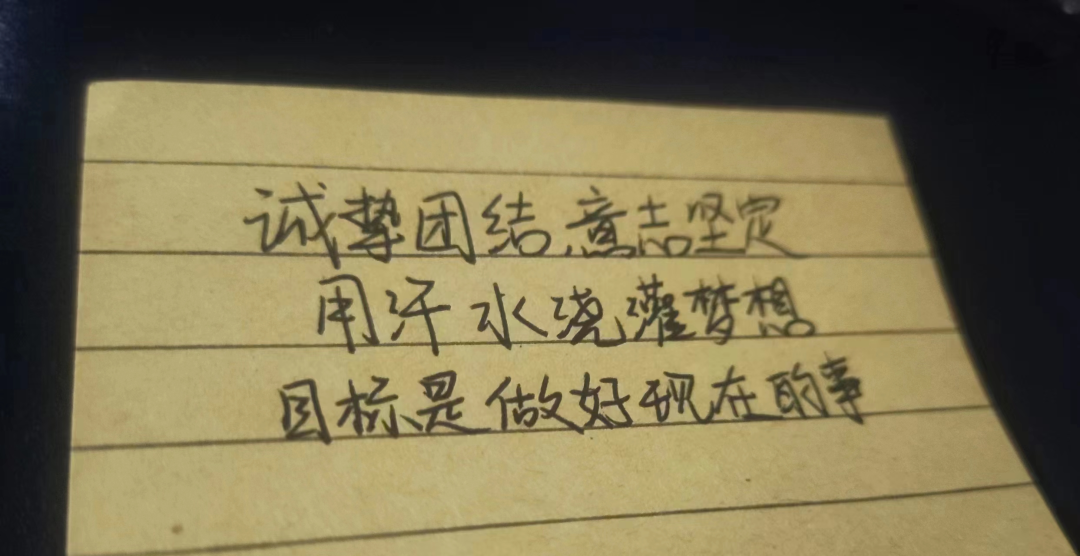 诚挚团结意志坚定
用汗水浇灌梦想
目标是做好现在的事